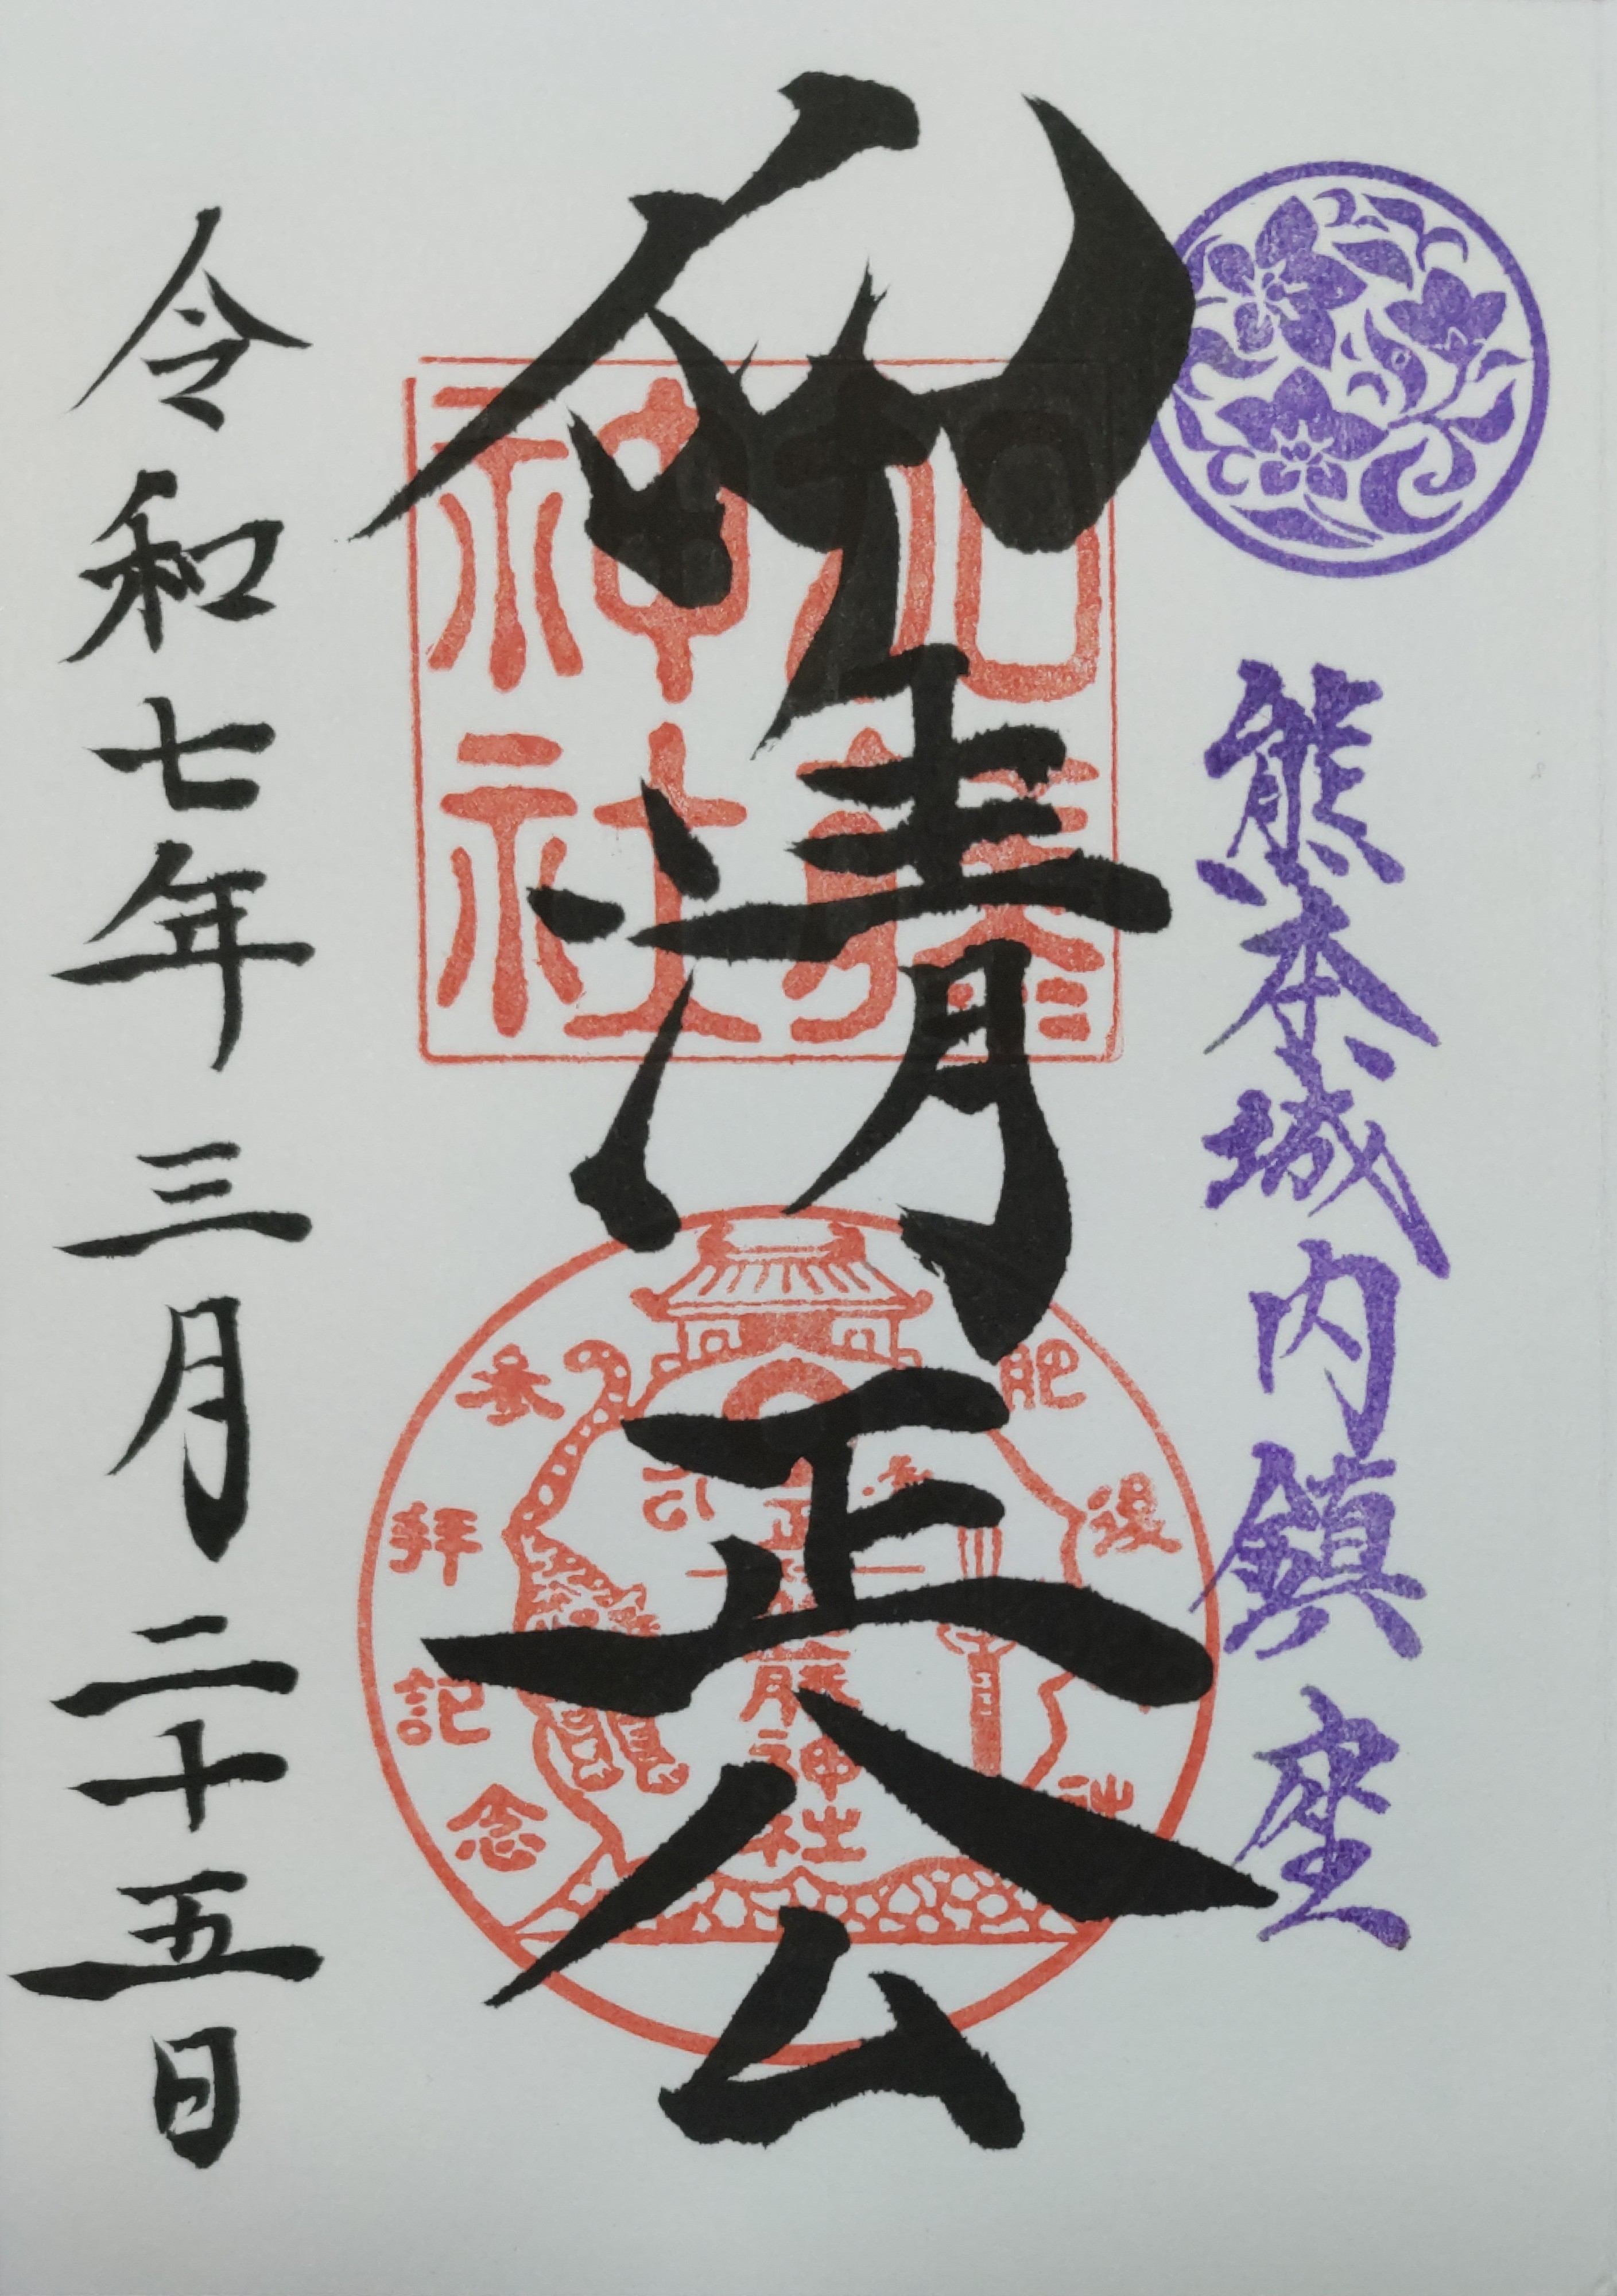 熊本城内鎮座
仰清正公
加藤
神社
肥後
参拝記念
神社
令和七年三月二十五日